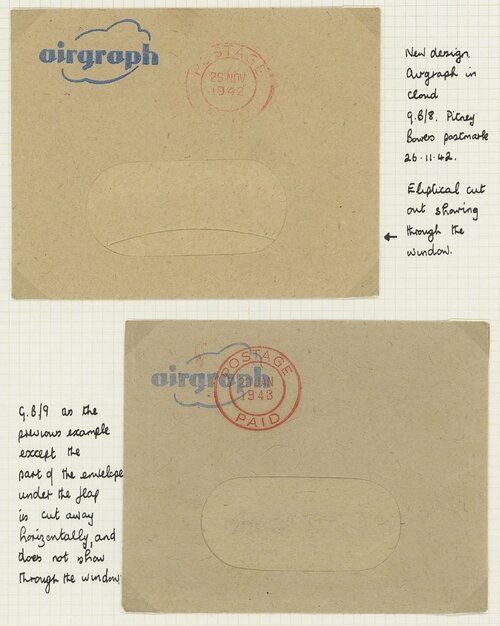 airgraph
POSTAGE
26 NOV
1942
New design.
Airgraph in
cloud
G.B/8. Pitney
Bowes postmark
26.11.42.
Eliptical cut
out showing
through the
window.
airgraph
POSTAGE
JAN
1943
PAID
G.B/9 as the
previous example
except the
part of the envelope
under the flap
is cut away
horizontally, and
does not show
through the window